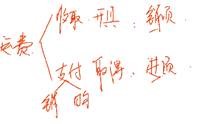 收取 开具:销项
运费
支付 取得、进项
销 购